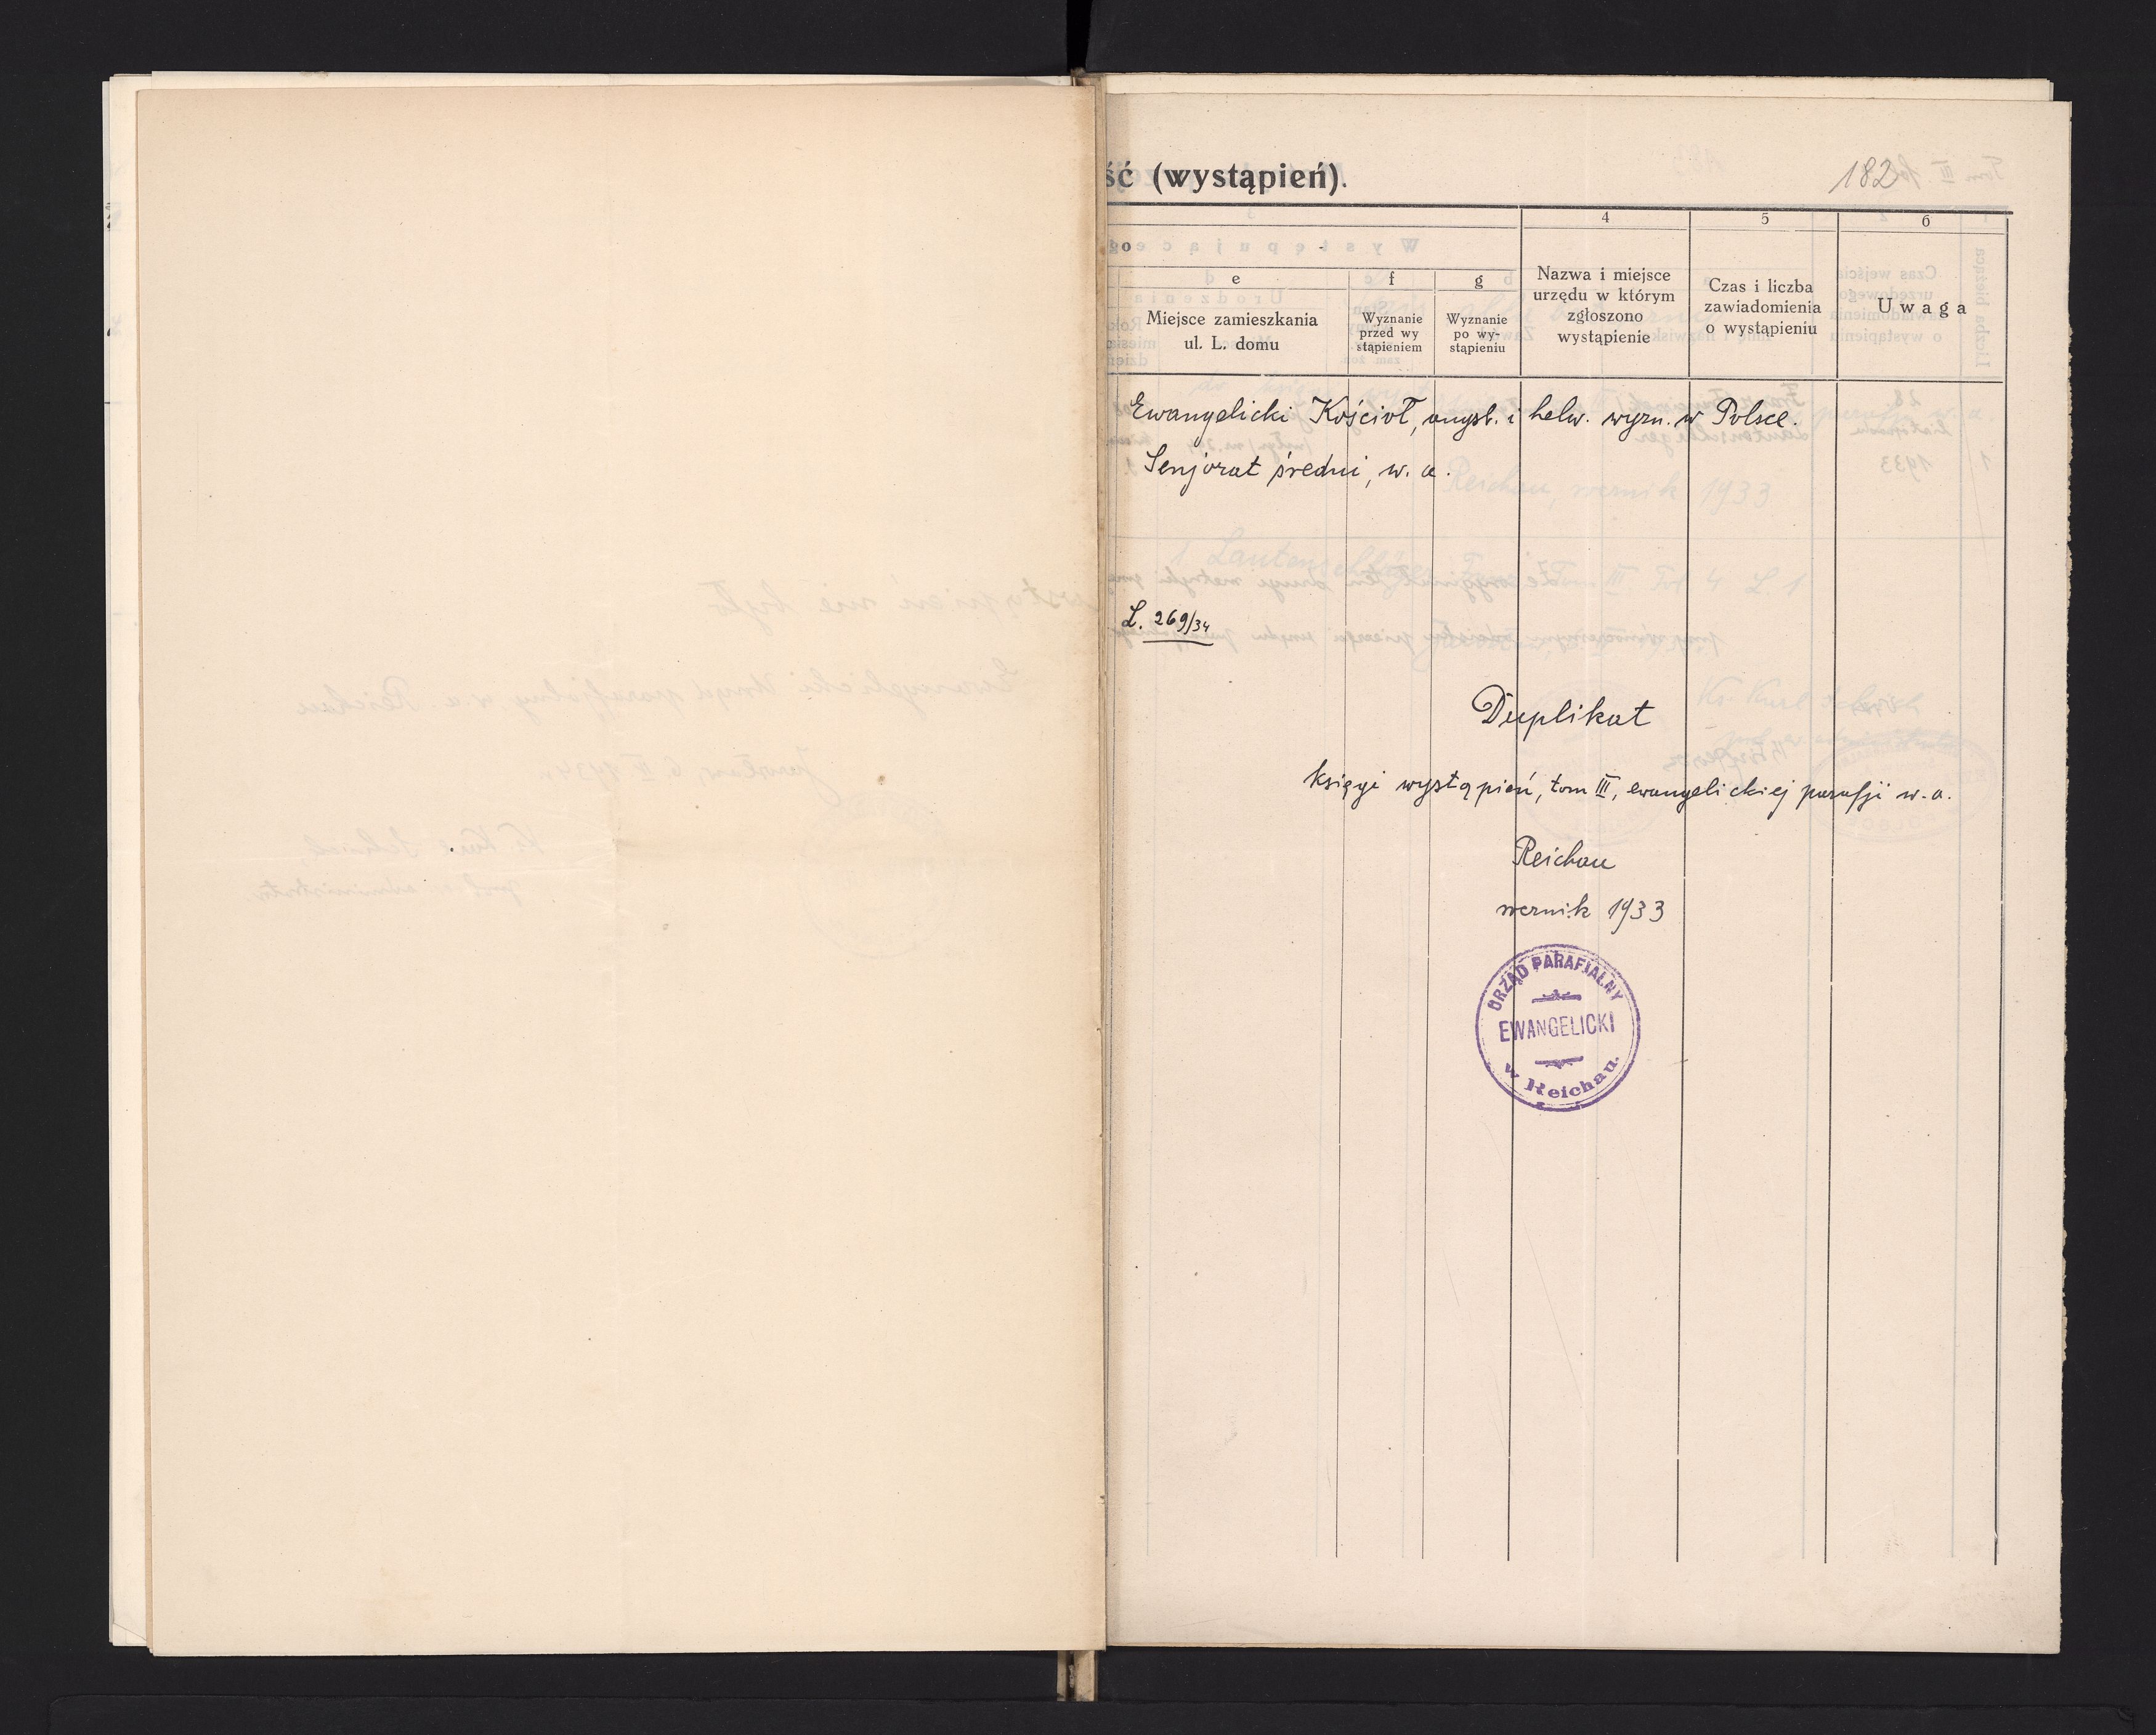 ść (wystąpień).
182
4
5
6
go
e
f
g
Miejsce zamieszkania
ul. L. domu
Wyznanie
przed wy
stąpieniem
Wyznanie
po wy-
stąpieniu
Nazwa i miejsce
urzędu w którym
zgłoszono
wystąpienie
Czas i liczba
zawiadomienia
o wystąpieniu
Uwaga
Ewangelicki Kościoł, augsb. i helw. wyzn. w Polsce.
Senjorat średni, w. a.
L. 269/34
Duplikat
księgi wystąpień, tom III, ewangelickiej parafji w. a.
Reichau
rocznik 1933
URZĄD PARAFIALNY
EWANGELICKI
w Reichau.